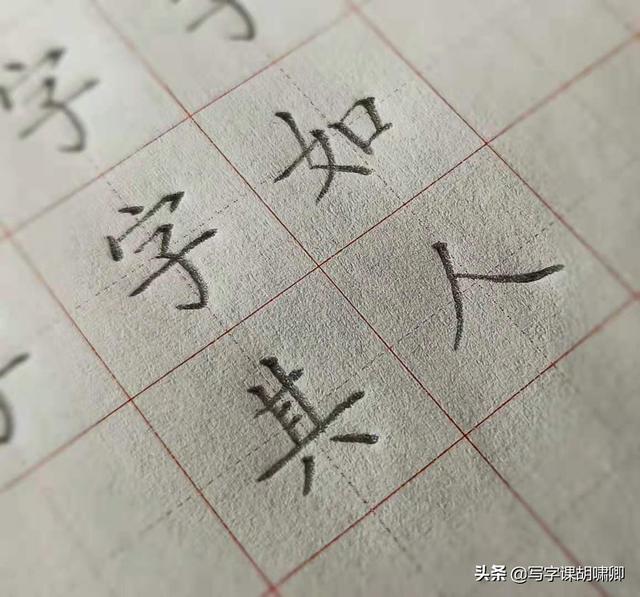 字如
其人
字
头条 @写字课胡啸卿